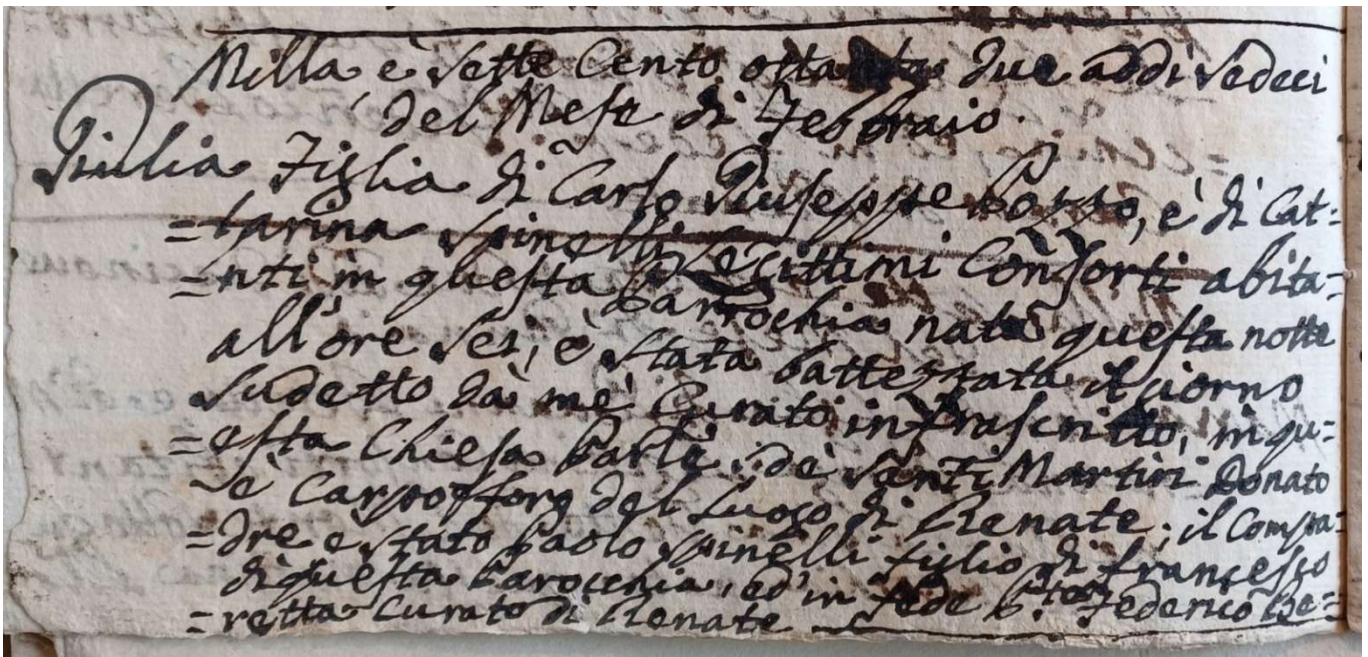 Milla è Sette Cento ottanta due addi Sedeci
del Mese di Febbraio.
Giulia Figlia di Carlo Giuseppe Pozzo, è di Cat=
=tarina Spinelli Legittimi Consorti abita=
=nti in questa Parrochia nata questa notte
all'ore Sei, è stata battezzata il giorno
Sudetto dà mè Curato infrascritto, in qu=
=esta Chiesa Parle: dè Santi Martiri Donato
è Carpofforo del Luogo di Renate; il Compa=
=dre e stato Paolo Spinelli figlio di Francesco
di questa Parocchia, ed in fede P. Federico Be=
=retta Curato di Renate